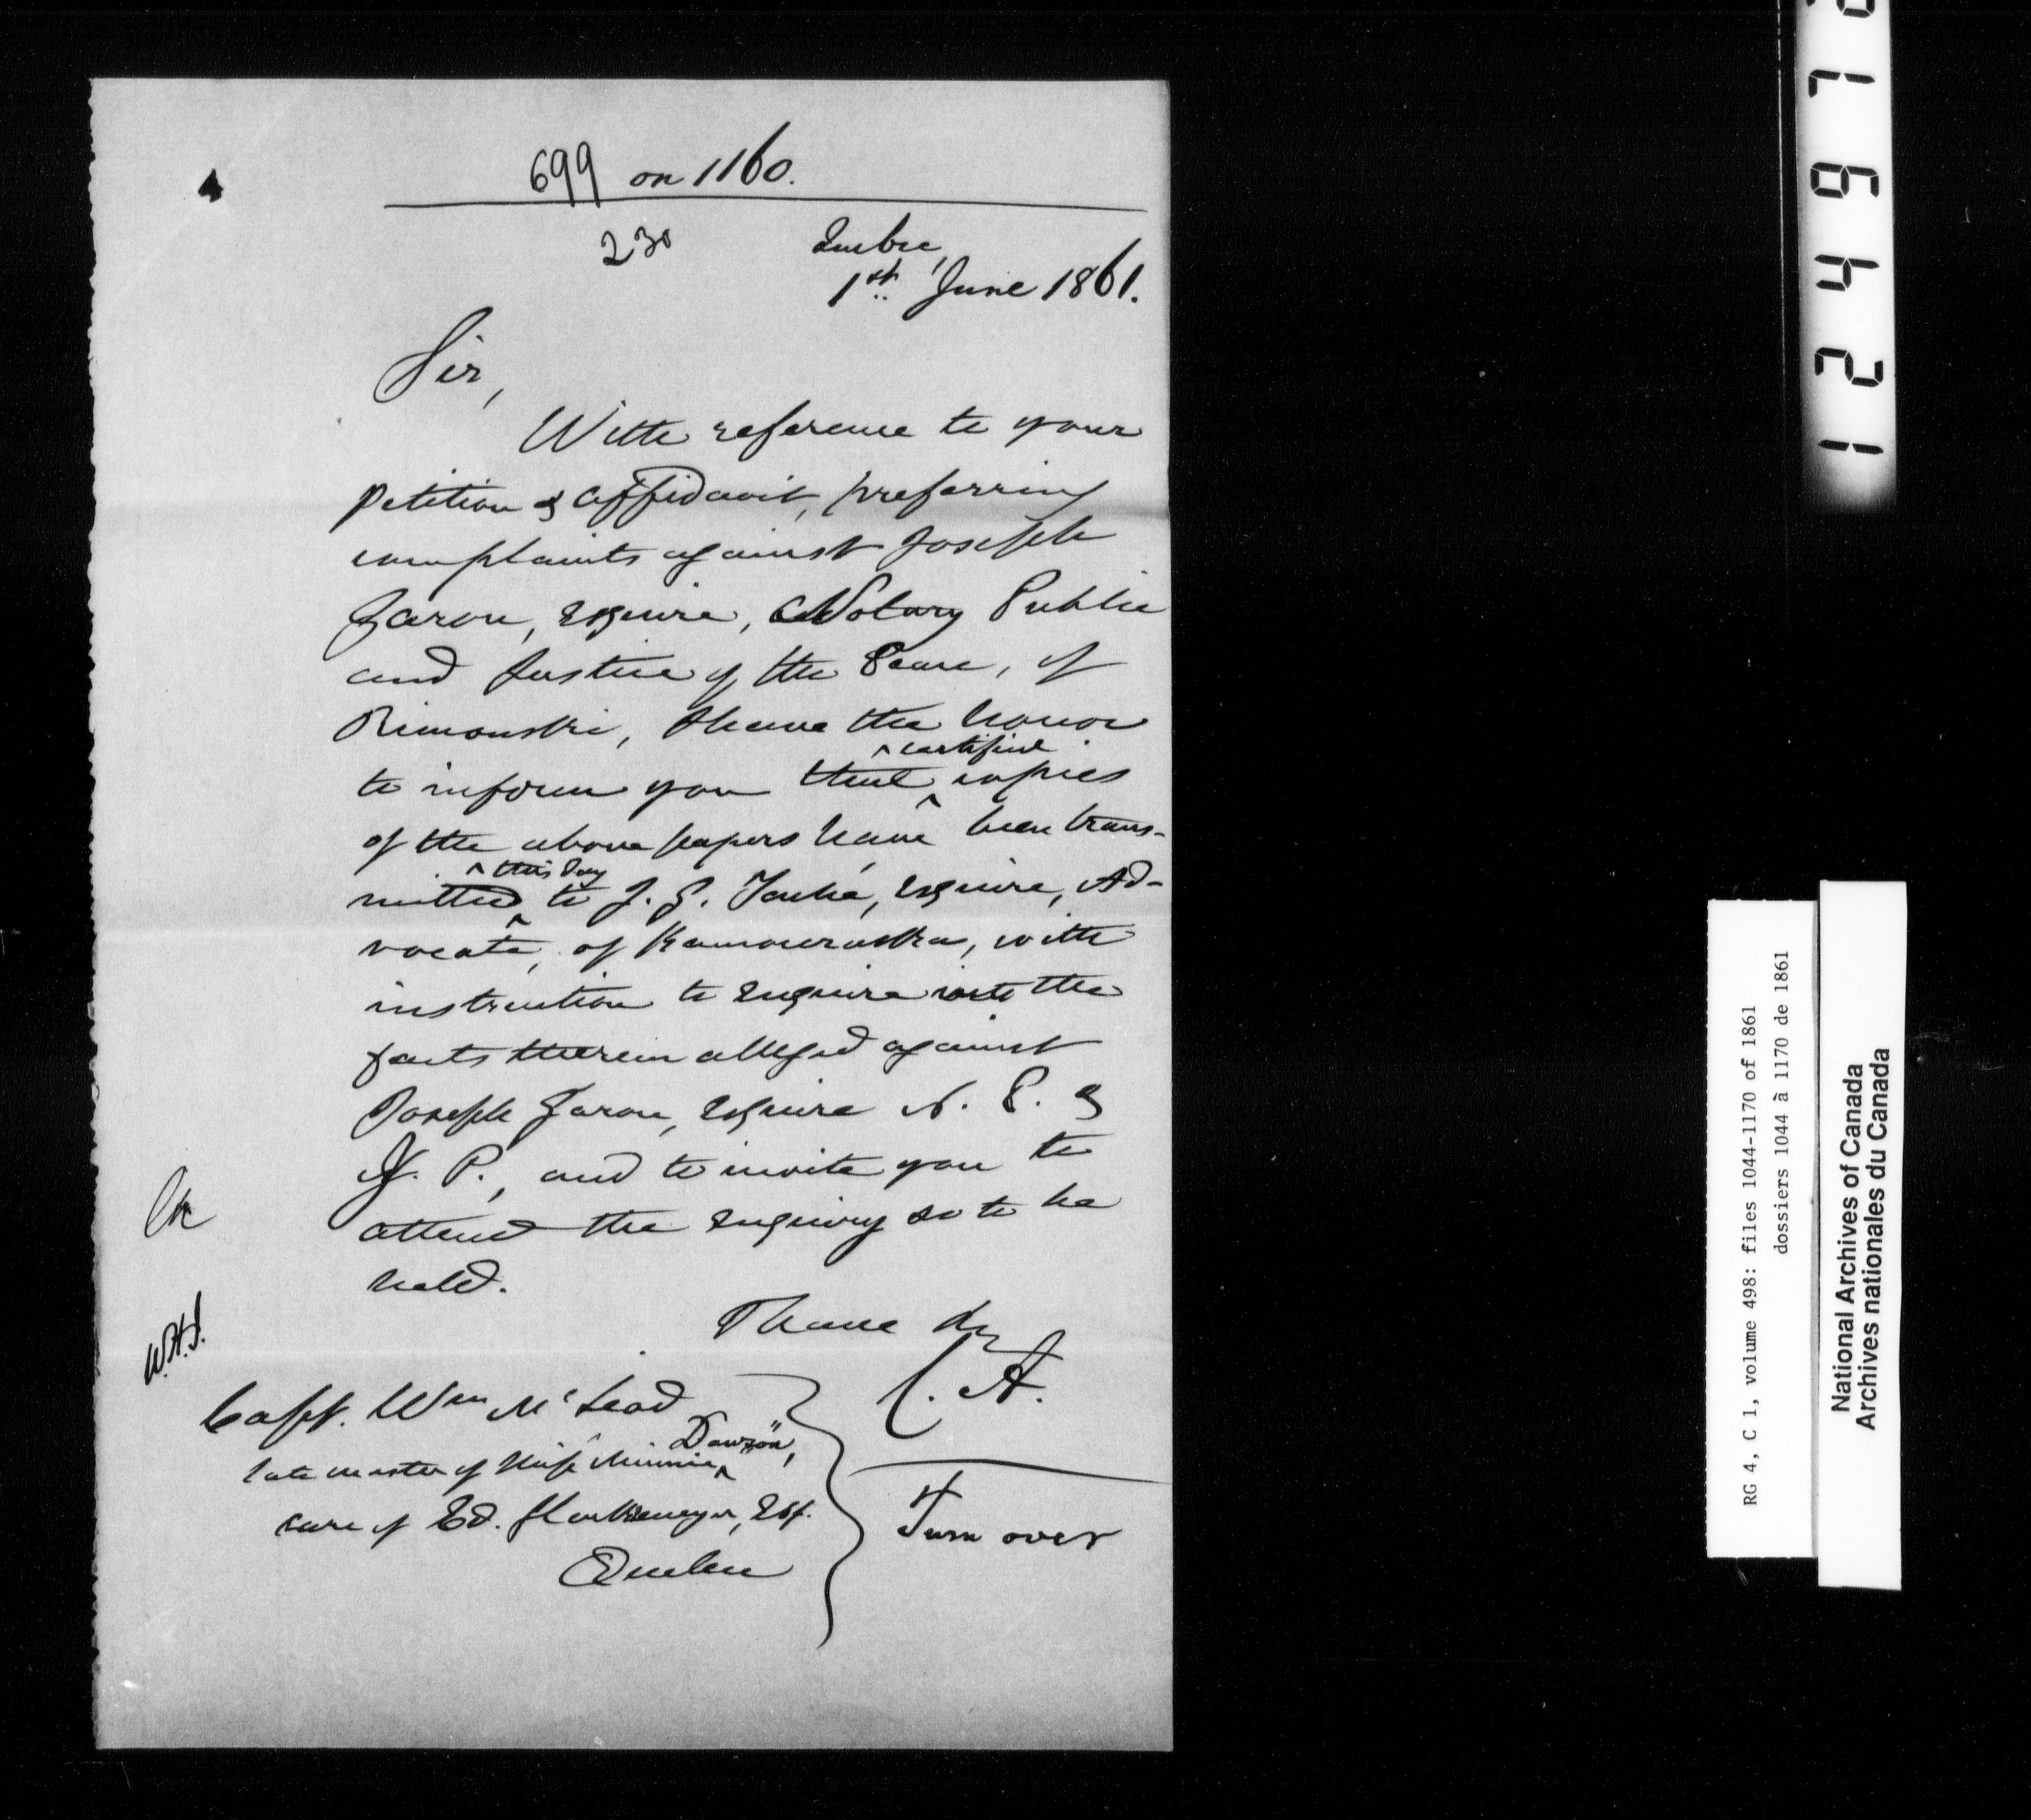 699 on 1160.
230
Quebec,
1st June 1861.
Sir,
With reference to your
petition & affidavit, preferring
complaints against Joseph
Garon, Esquire, Notary Public
and Justice of the Peace, of
Rimouski, I have the honor
to inform you that ^certified copies
of the above papers have been trans-
mitted ^this day to J. G. Taché, Esquire, Ad-
vocate, of Kamouraska, with
instruction to enquire into the
facts therein alleged against
Joseph Garon, Esquire N. P. &
J. P., and to invite you to
attend the enquiry so to be
held.
I have &c
C. A.
W.H.J.
Capt. Wm McLeod
late master of Ship Minnie ^Dawson,
care of Ed. Esq.
Quebec
Turn over
12 4 4 9 7
RG 4, C 1, volume 498: files 1044-1170 of 1861
dossiers 1044 à 1170 de 1861
National Archives of Canada
Archives nationales du Canada